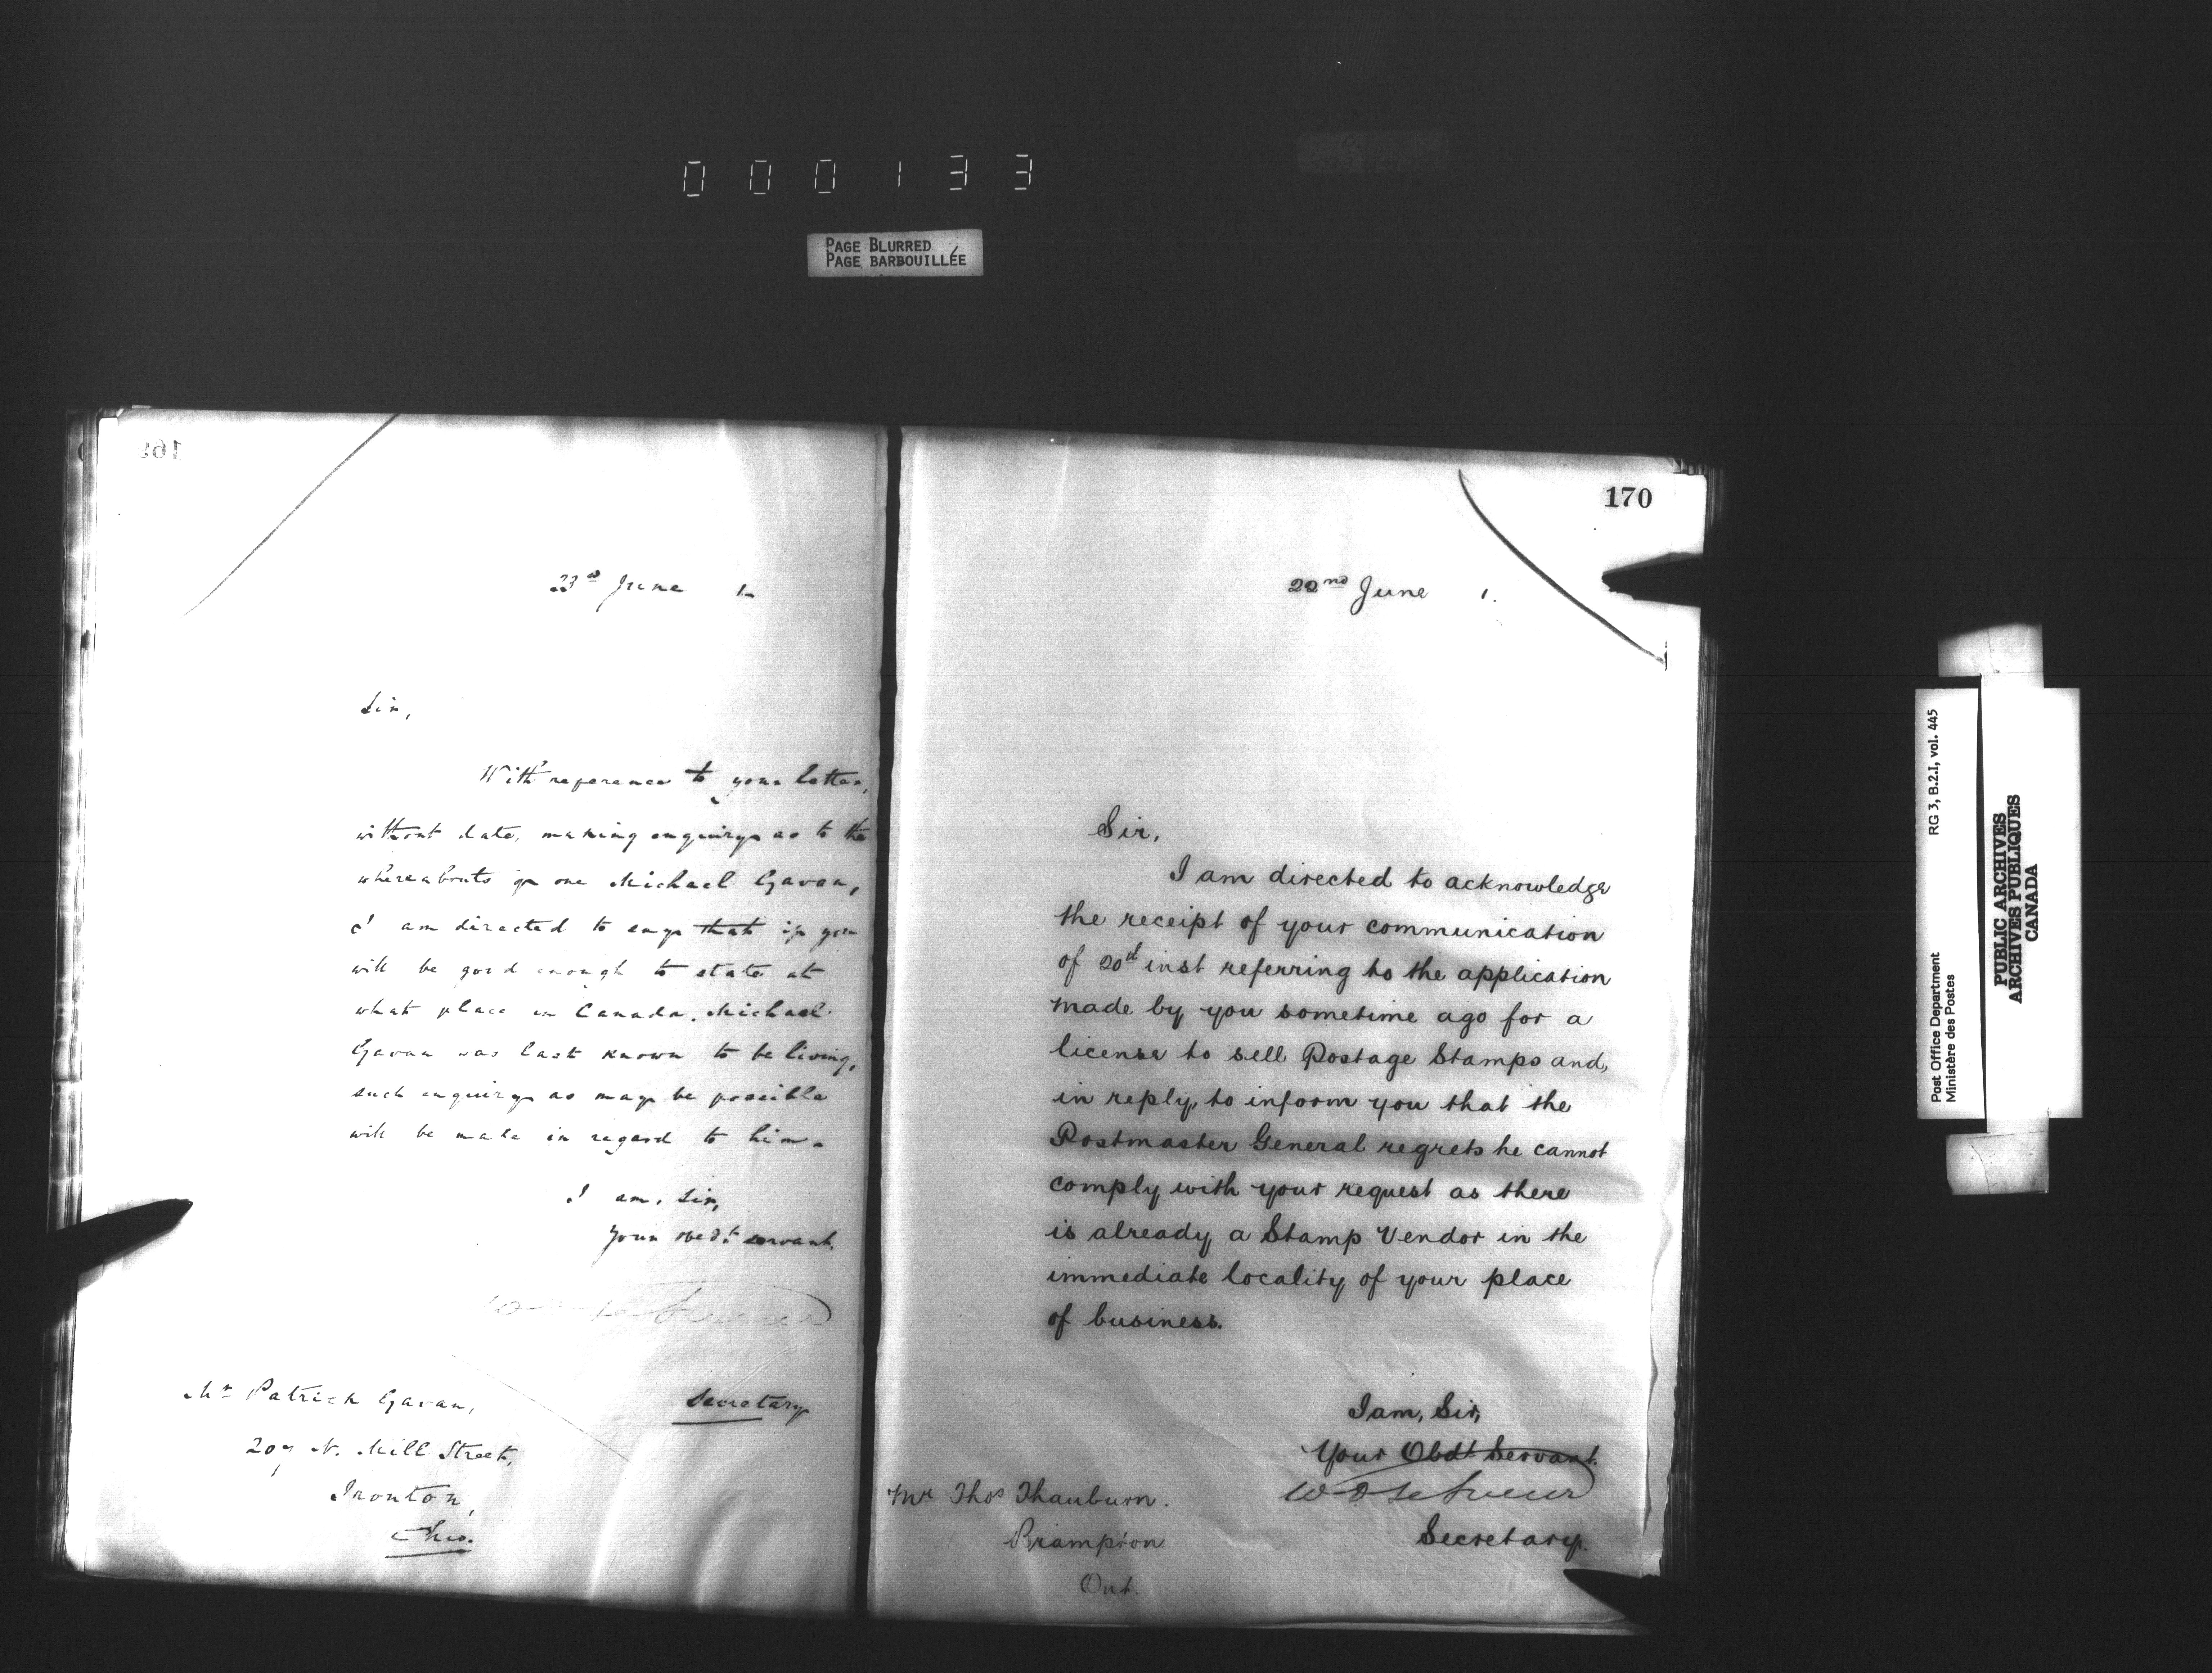 000133
PAGE BLURRED
PAGE BARBOUILLÉE
23rd June 1
Sir,
With reference to your letter,
without date, making enquiry as to the
whereabouts of one Michael Gavan,
I am directed to say that if you
will be good enough to state at
what place in Canada, Michael
Gavan was last known to be living,
such enquiry as may be possible
will be made in regard to him.
I am, Sir,
Your obedt. servant.
Secretary
Mr Patrick Gavan,
207 N. Mill Street,
Ironton,
Ohio.
170
22nd June 1.
Sir,
I am directed to acknowledge
the receipt of your communication
of 20th inst referring to the application
made by you sometime ago for a
license to sell Postage Stamps and,
in reply, to inform you that the
Postmaster General regrets he cannot
comply with your request as there
is already a Stamp Vendor in the
immediate locality of your place
of business.
I am, Sir,
Your Obdt Servant.
W D LeSueur
Secretary.
Mr Thos Thauburn.
Brampton
Ont.
Post Office Department
Ministère des Postes
RG 3, B.2.I, vol. 445
PUBLIC ARCHIVES
ARCHIVES PUBLIQUES
CANADA